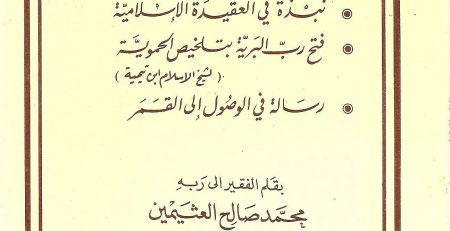 نبذة في العقيدة الإسلاميّة
فتح ربّ البريّة بتلخيص الحمويّة
(لشيخ الإسلام ابن تيمية)
رسالة في الوصُول إلى القمَر
بقلم الفقير الى ربه
محمّد صَالح العثيمين